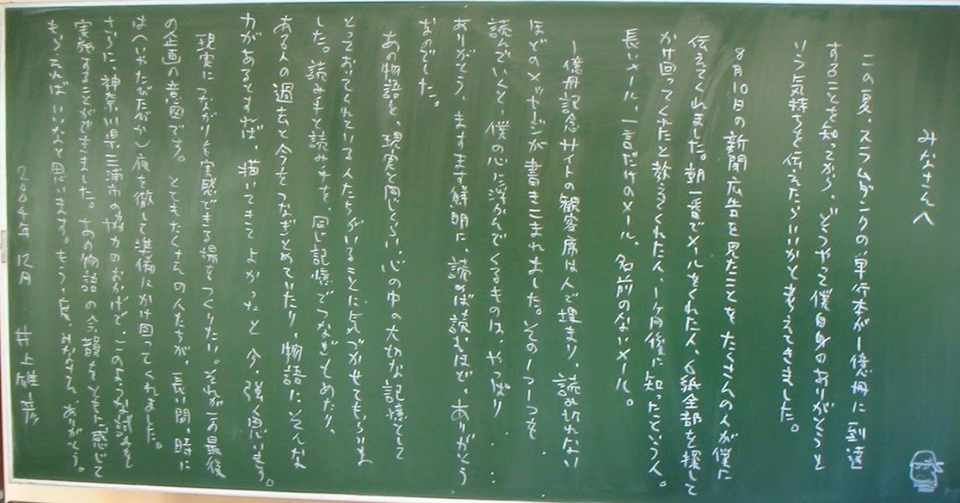 みなさんへ
この夏、スラムダンクの単行本が1億冊に到達
することを知ってから、どうやって僕自身のありがとうと
いう気持ちを伝えたらいいかと考えてきました。
8月10日の新聞広告を見たことを、たくさんの人が僕に
伝えてくれました。朝一番でメールをくれた人、6紙全部を探して
かけ回ってくれたと教えてくれた人、1ヶ月後に知ったという人。
長いメール、一言だけのメール、名前のないメール。
1億冊記念サイトの観客席は人で埋まり、読み切れない
ほどのメッセージが書きこまれました。その1つ1つを
読んでいくと、僕の心に浮かんでくるものは、やっぱり....
ありがとう、ますます鮮明に、読めば読むほど、ありがとう
なのでした。
あの物語を、現実と同じくらい、心の中の大切な記憶として
とっておいてくれている人たちがいることに気づかせてもらいま
した。読み手と読み手を、同じ記憶でつなぎとめたり、
ある人の過去と今をつなぎとめていたり、物語にそんな
力があるとすれば、描いてきてよかったと今、強く思います。
現実につながりを実感できる場をつくりたい。それがこの最後
の企画の意図です。とてもたくさんの人たちが、長い間、時に
は(いやたびたびか)夜を徹して準備にかけ回ってくれました。
さらに、神奈川県三浦市の協力のおかげで、このような試みを
実施することができました。あの物語の余韻を感じて
もらえればいいなと思います。もう一度、みなさん、ありがとう。
2004年 12月 井上雄彦